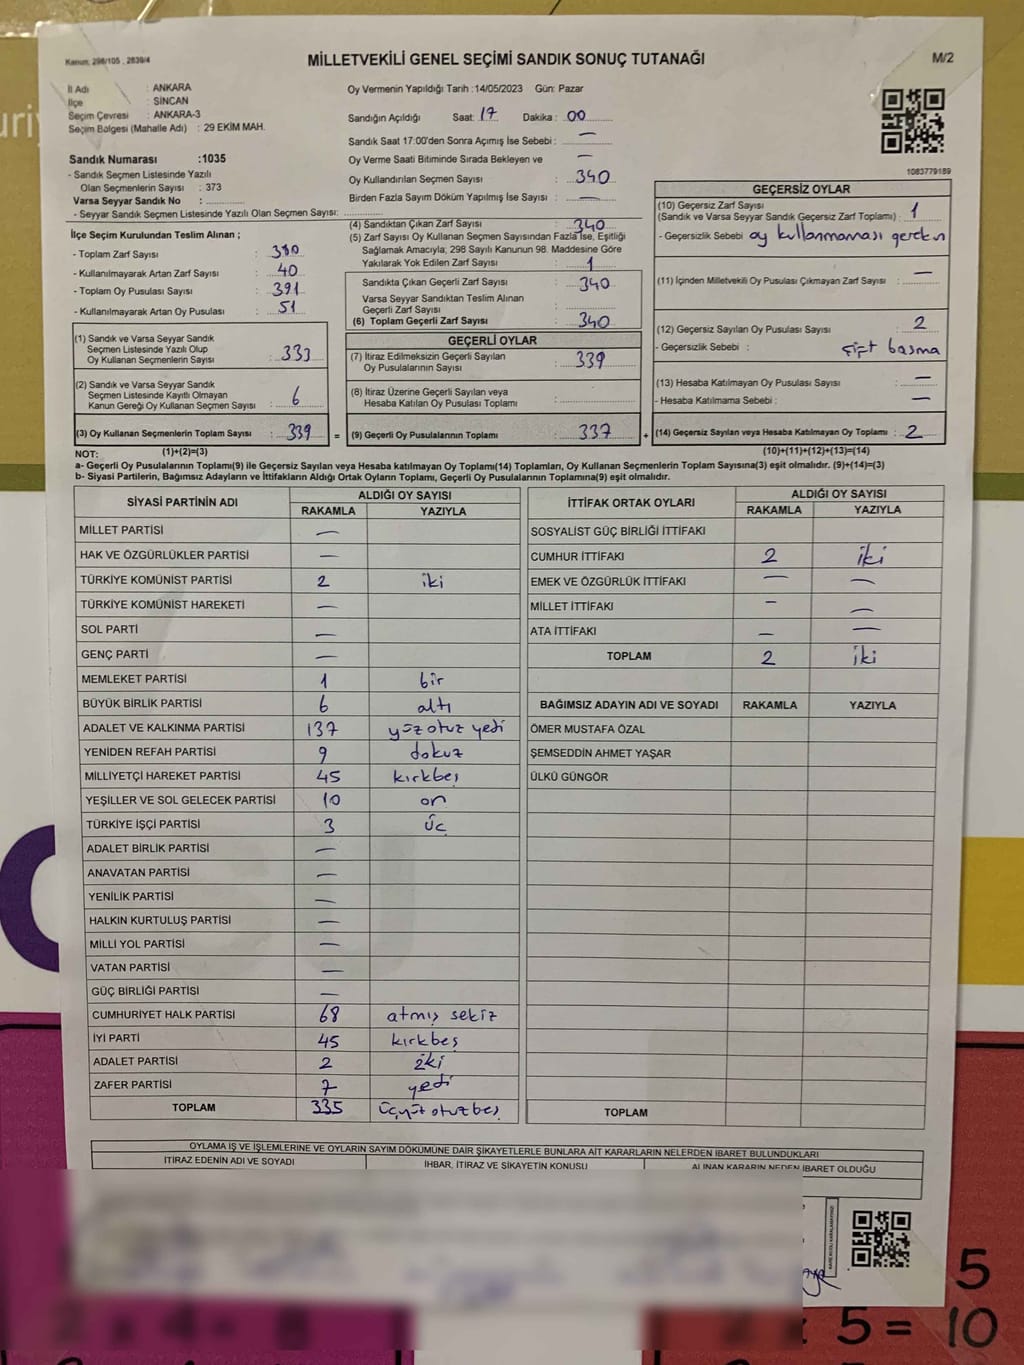 Kanun: 298/105 , 2839/4
MİLLETVEKİLİ GENEL SEÇİMİ SANDIK SONUÇ TUTANAĞI
M/2
İl Adı : ANKARA
İlçe : SİNCAN
Seçim Çevresi : ANKARA-3
Seçim Bölgesi (Mahalle Adı) : 29 EKİM MAH.
Sandık Numarası :1035
- Sandık Seçmen Listesinde Yazılı
Olan Seçmenlerin Sayısı : 373
Varsa Seyyar Sandık No :
- Seyyar Sandık Seçmen Listesinde Yazılı Olan Seçmen Sayısı:
İlçe Seçim Kurulundan Teslim Alınan ;
- Toplam Zarf Sayısı : 380
- Kullanılmayarak Artan Zarf Sayısı : 40
- Toplam Oy Pusulası Sayısı : 391
- Kullanılmayarak Artan Oy Pusulası : 51
(1) Sandık ve Varsa Seyyar Sandık
Seçmen Listesinde Yazılı Olup
Oy Kullanan Seçmenlerin Sayısı : 333
(2) Sandık ve Varsa Seyyar Sandık
Seçmen Listesinde Kayıtlı Olmayan
Kanun Gereği Oy Kullanan Seçmen Sayısı : 6
(3) Oy Kullanan Seçmenlerin Toplam Sayısı : 339 =
Oy Vermenin Yapıldığı Tarih :14/05/2023 Gün: Pazar
Sandığın Açıldığı Saat: 17 Dakika : 00
Sandık Saat 17:00'den Sonra Açımış İse Sebebi : —
Oy Verme Saati Bitiminde Sırada Bekleyen ve —
Oy Kullandırılan Seçmen Sayısı : 340
Birden Fazla Sayım Döküm Yapılmış İse Sayısı : —
(4) Sandıktan Çıkan Zarf Sayısı : 340
(5) Zarf Sayısı Oy Kullanan Seçmen Sayısından Fazla İse, Eşitliği
Sağlamak Amacıyla; 298 Sayılı Kanunun 98. Maddesine Göre
Yakılarak Yok Edilen Zarf Sayısı : 1
Sandıkta Çıkan Geçerli Zarf Sayısı : 340
Varsa Seyyar Sandıktan Teslim Alınan
Geçerli Zarf Sayısı :
(6) Toplam Geçerli Zarf Sayısı : 340
GEÇERLİ OYLAR
(7) İtiraz Edilmeksizin Geçerli Sayılan
Oy Pusulalarının Sayısı : 339
(8) İtiraz Üzerine Geçerli Sayılan veya
Hesaba Katılan Oy Pusulası Toplamı :
(9) Geçerli Oy Pusulalarının Toplamı : 337 +
1083779189
GEÇERSİZ OYLAR
(10) Geçersiz Zarf Sayısı
(Sandık ve Varsa Seyyar Sandık Geçersiz Zarf Toplamı) : 1
- Geçersizlik Sebebi : oy kullanmaması gereken
(11) İçinden Milletvekili Oy Pusulası Çıkmayan Zarf Sayısı : —
(12) Geçersiz Sayılan Oy Pusulası Sayısı : 2
- Geçersizlik Sebebi : çift basma
(13) Hesaba Katılmayan Oy Pusulası Sayısı : —
- Hesaba Katılmama Sebebi : —
(14) Geçersiz Sayılan veya Hesaba Katılmayan Oy Toplamı : 2
NOT: (1)+(2)=(3) (10)+(11)+(12)+(13)=(14)
a- Geçerli Oy Pusulalarının Toplamı(9) ile Geçersiz Sayılan veya Hesaba katılmayan Oy Toplamı(14) Toplamları, Oy Kullanan Seçmenlerin Toplam Sayısına(3) eşit olmalıdır. (9)+(14)=(3)
b- Siyasi Partilerin, Bağımsız Adayların ve İttifakların Aldığı Ortak Oyların Toplamı, Geçerli Oy Pusulalarının Toplamına(9) eşit olmalıdır.
SİYASİ PARTİNİN ADI ALDIĞI OY SAYISI
RAKAMLA YAZIYLA
MİLLET PARTİSİ —
HAK VE ÖZGÜRLÜKLER PARTİSİ —
TÜRKİYE KOMÜNİST PARTİSİ 2 iki
TÜRKİYE KOMÜNİST HAREKETİ —
SOL PARTİ —
GENÇ PARTİ —
MEMLEKET PARTİSİ 1 bir
BÜYÜK BİRLİK PARTİSİ 6 altı
ADALET VE KALKINMA PARTİSİ 137 yüz otuz yedi
YENİDEN REFAH PARTİSİ 9 dokuz
MİLLİYETÇİ HAREKET PARTİSİ 45 kırkbeş
YEŞİLLER VE SOL GELECEK PARTİSİ 10 on
TÜRKİYE İŞÇİ PARTİSİ 3 üç
ADALET BİRLİK PARTİSİ —
ANAVATAN PARTİSİ —
YENİLİK PARTİSİ —
HALKIN KURTULUŞ PARTİSİ —
MİLLİ YOL PARTİSİ —
VATAN PARTİSİ —
GÜÇ BİRLİĞİ PARTİSİ —
CUMHURİYET HALK PARTİSİ 68 atmış sekiz
İYİ PARTİ 45 kırkbeş
ADALET PARTİSİ 2 iki
ZAFER PARTİSİ 7 yedi
TOPLAM 335 üçyüz otuzbeş
İTTİFAK ORTAK OYLARI ALDIĞI OY SAYISI
RAKAMLA YAZIYLA
SOSYALİST GÜÇ BİRLİĞİ İTTİFAKI
CUMHUR İTTİFAKI 2 iki
EMEK VE ÖZGÜRLÜK İTTİFAKI — —
MİLLET İTTİFAKI — —
ATA İTTİFAKI — —
TOPLAM 2 iki
BAĞIMSIZ ADAYIN ADI VE SOYADI RAKAMLA YAZIYLA
ÖMER MUSTAFA ÖZAL
ŞEMSEDDİN AHMET YAŞAR
ÜLKÜ GÜNGÖR
TOPLAM
OYLAMA İŞ VE İŞLEMLERİNE VE OYLARIN SAYIM DÖKÜMÜNE DAİR ŞİKAYETLERLE BUNLARA AİT KARARLARIN NELERDEN İBARET BULUNDUKLARI
İTİRAZ EDENİN ADI VE SOYADI İHBAR, İTİRAZ VE ŞİKAYETİN KONUSU ALINAN KARARIN NEDEN İBARET OLDUĞU
5
5 = 10